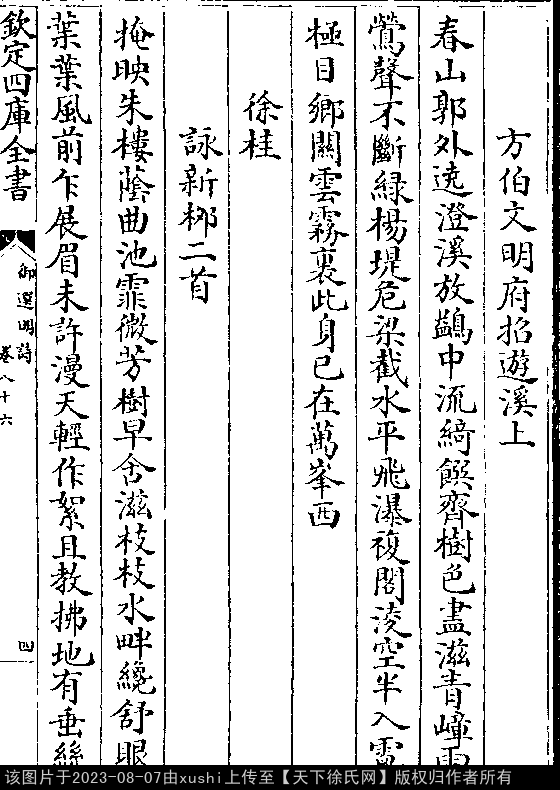 方伯文明府招遊溪上
春山郭外遶澄溪放鷁中流綺饌齊樹色盡滋青嶂雨
鶯聲不斷緑楊堤危梁截水平飛瀑複閣淩空半入霓
極目鄉關雲霧裏此身已在萬峯西
徐桂
詠新桞二首
掩映朱樓蔭曲池霏微芳樹早含滋枝枝水畔纔舒眼
葉葉風前乍展眉未許漫天輕作絮且教拂地有垂絲
欽定四庫全書
御選明詩
卷八十六
四
该图片于2023-08-07由xushi上传至【天下徐氏网】版权归作者所有